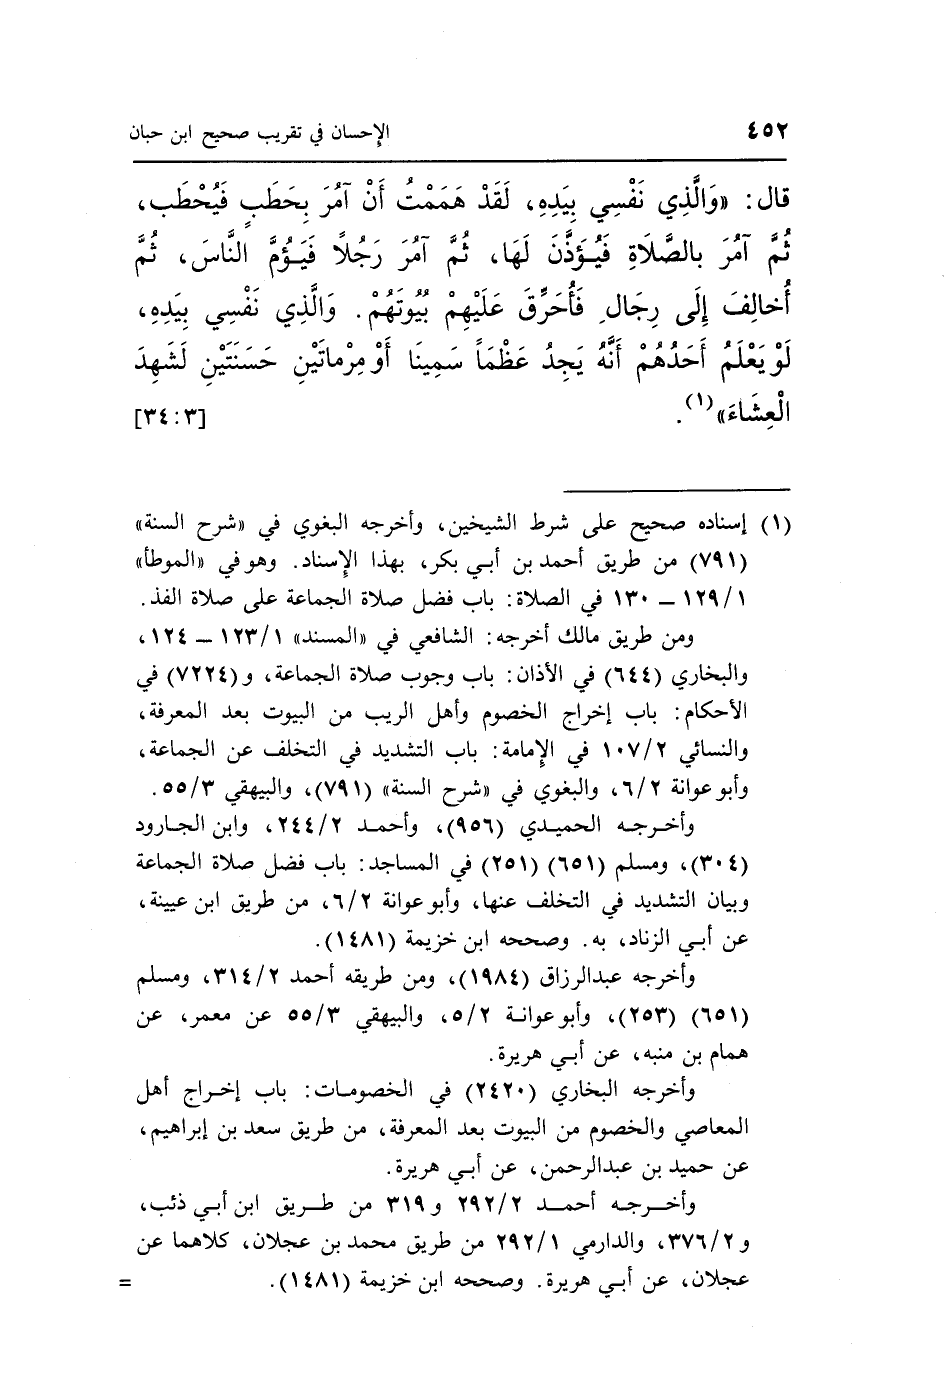 ٤٥٢ الإحسان في تقريب صحيح ابن حبان
قال: «وَالَّذِي نَفْسِي بِيَدِهِ، لَقَدْ هَمَمْتُ أَنْ آمُرَ بِحَطَبٍ فَيُحْطَب،
ثُمَّ آمُرَ بالصَّلَاةِ فَيُؤَذَّنَ لَهَا، ثُمَّ آمُرَ رَجُلًا فَيَؤُمَّ النَّاسَ، ثُمَّ
أُخالِفَ إِلَى رِجَالٍ فَأُحَرِّقَ عَلَيْهِمْ بُيُوتَهُمْ. وَالَّذِي نَفْسِي بِيَدِهِ،
لَوْ يَعْلَمُ أَحَدُهُمْ أَنَّهُ يَجِدُ عَظْمَاً سَمِينَا أَوْ مِرْماتَيْنِ حَسَنَتَيْنِ لَشَهِدَ
الْعِشَاءَ»(١). [٣٤:٣]
(١) إسناده صحيح على شرط الشيخين، وأخرجه البغوي في «شرح السنة»
(٧٩١) من طريق أحمد بن أبي بكر، بهذا الإسناد. وهو في «الموطأ»
١٢٩/١ – ١٣٠ في الصلاة: باب فضل صلاة الجماعة على صلاة الفذ.
ومن طريق مالك أخرجه: الشافعي في «المسند» ١٢٣/١ – ١٢٤،
والبخاري (٦٤٤) في الأذان: باب وجوب صلاة الجماعة، و(٧٢٢٤) في
الأحكام: باب إخراج الخصوم وأهل الريب من البيوت بعد المعرفة،
والنسائي ١٠٧/٢ في الإمامة: باب التشديد في التخلف عن الجماعة،
وأبو عوانة ٦/٢، والبغوي في «شرح السنة» (٧٩١)، والبيهقي ٥٥/٣.
وأخرجه الحميدي (٩٥٦)، وأحمد ٢٤٤/٢، وابن الجارود
(٣٠٤)، ومسلم (٦٥١) (٢٥١) في المساجد: باب فضل صلاة الجماعة
وبيان التشديد في التخلف عنها، وأبو عوانة ٦/٢، من طريق ابن عيينة،
عن أبي الزناد، به. وصححه ابن خزيمة (١٤٨١).
وأخرجه عبدالرزاق (١٩٨٤)، ومن طريقه أحمد ٣١٤/٢، ومسلم
(٦٥١) (٢٥٣)، وأبو عوانة ٥/٢، والبيهقي ٥٥/٣ عن معمر، عن
همام بن منبه، عن أبي هريرة.
وأخرجه البخاري (٢٤٢٠) في الخصومات: باب إخراج أهل
المعاصي والخصوم من البيوت بعد المعرفة، من طريق سعد بن إبراهيم،
عن حميد بن عبدالرحمن، عن أبي هريرة.
وأخرجه أحمد ٢٩٢/٢ و ٣١٩ من طريق ابن أبي ذئب،
و ٣٧٦/٢، والدارمي ٢٩٢/١ من طريق محمد بن عجلان، كلاهما عن
عجلان، عن أبي هريرة. وصححه ابن خزيمة (١٤٨١). =